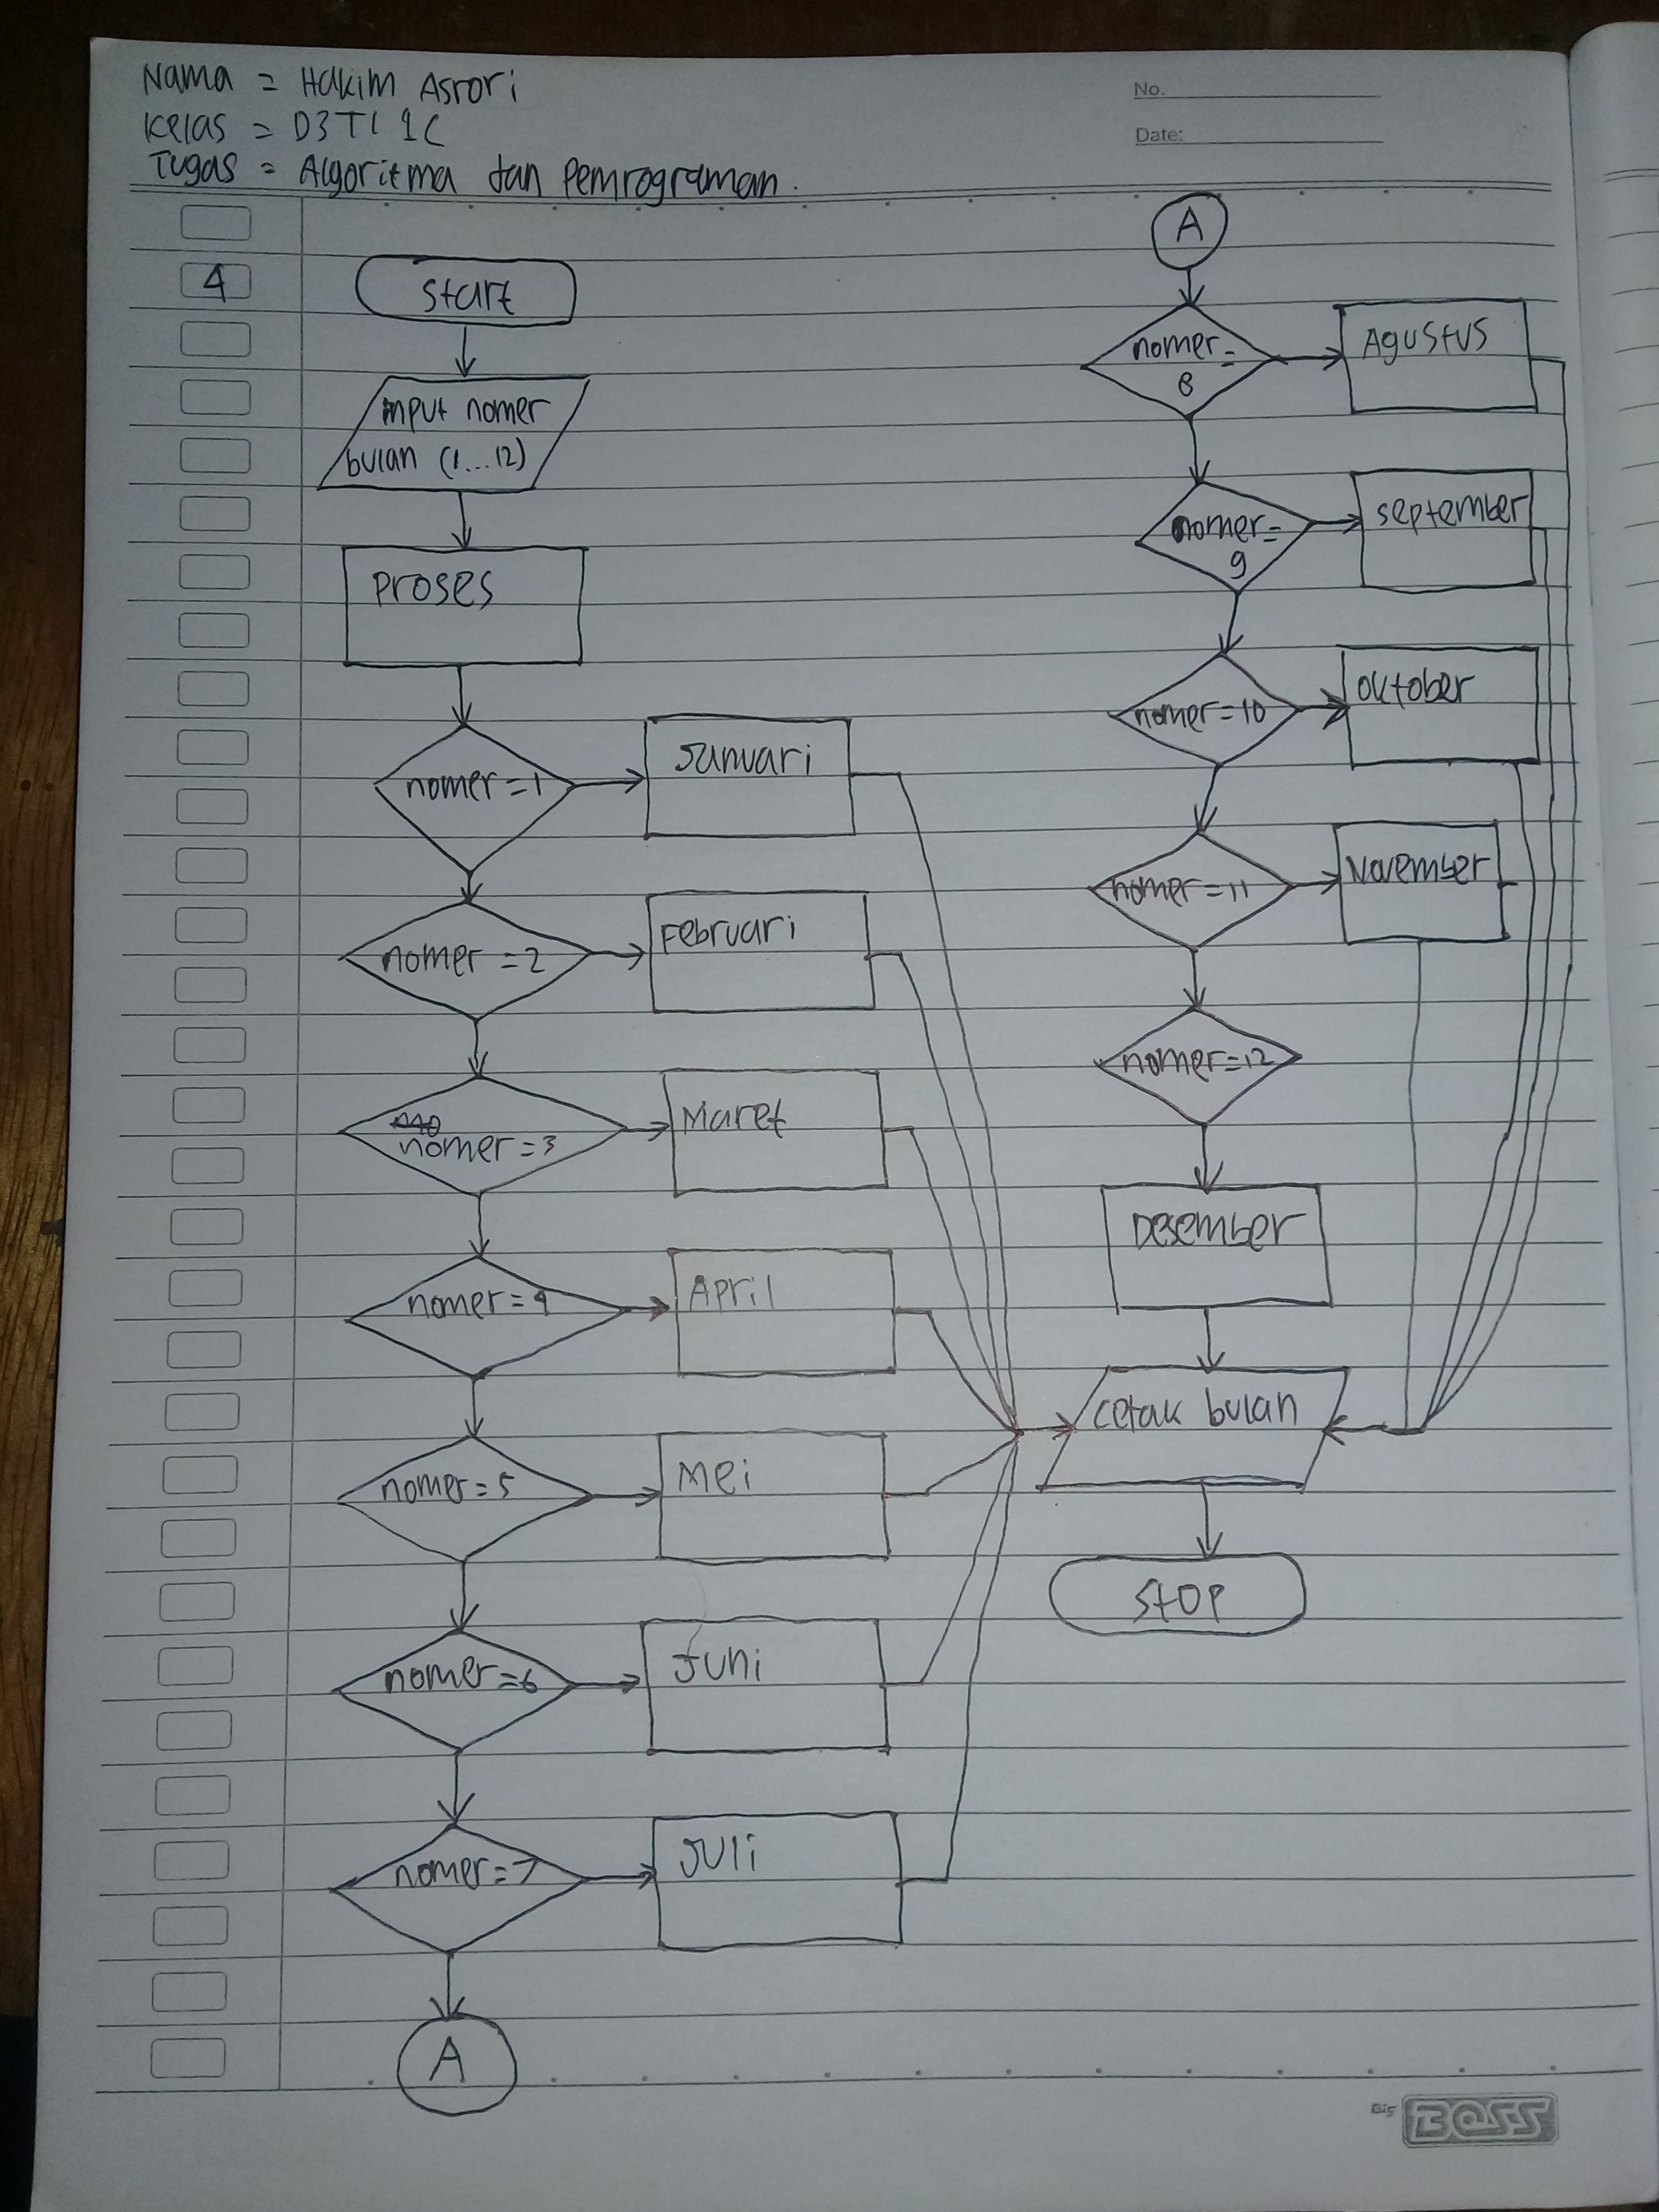 Nama = Hakim Asrori
Kelas = D3TI 1C
Tugas = Algoritma dan Pemrograman.
No.
Date:
4
start
input nomer
bulan (1...12)
Proses
nomer=1
Januari
nomer=2
Februari
nomer=3
Maret
nomer=4
April
nomer=5
Mei
nomer=6
Juni
nomer=7
Juli
A
A
nomer=
8
Agustus
nomer=
9
september
nomer=10
oktober
nomer=11
November
nomer=12
Desember
cetak bulan
STOP
Big BOSS